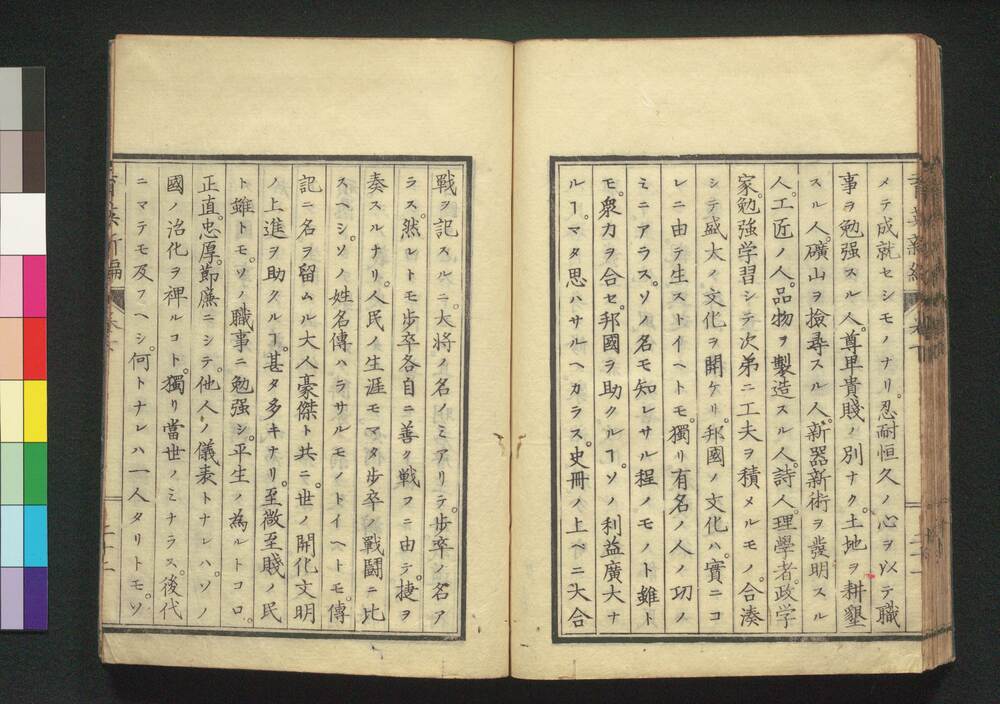 メテ成就セシモノナリ。忍耐恒久ノ心ヲ以テ職
事ヲ勉强スル人。尊卑貴賤ノ別ナク。土地ヲ耕墾
スル人。礦山ヲ撿尋スル人。新器新術ヲ發明スル
人。工匠ノ人。品物ヲ製造スル人。詩人。理學者。政学
家。勉強学習シテ次第ニ工夫ヲ積メルモノ。合湊
シテ盛大ノ文化ヲ開ケリ。邦國ノ文化ハ。實ニコ
レニ由テ生ストイヘトモ。獨リ有名ノ人ノ功ノ
ミニアラス。ソノ名モ知レサル程ノモノト雖ト
モ。衆力ヲ合セ。邦國ヲ助クルヿ。ソノ利益廣大ナ
ルヿ。マタ思ハサルヘカラス。史冊ノ上ヘニ大合
戰ヲ記スルニ。大将ノ名ノミアリテ。歩卒ノ名ア
ラス。然レトモ歩卒各自ニ善ク戰フニ由テ。捷ヲ
奏スルナリ。人民ノ生涯モマタ歩卒ノ戰鬪ニ比
スヘシ。ソノ姓名傳ハラサルモノトイヘトモ。傳
記ニ名ヲ留ムル大人豪傑ト共ニ。世ノ開化文明
ノ上進ヲ助クルヿ。甚タ多キナリ。至微至賤ノ民
ト雖トモ。ソノ職事ニ勉强シ。平生ノ為ルトコロ。
正直。忠厚。節廉ニシテ。他人ノ儀表トナレハ。ソノ
國ノ治化ヲ裨ルコト。獨リ當世ノミナラス。後代
ニマテモ及フヘシ。何トナレハ一人タリトモ。ソ